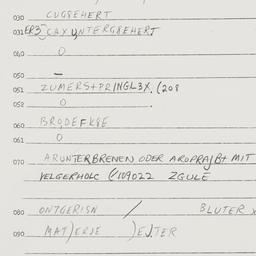 030 CUGBEHERT
031 ER3 CAX UNTERGBEHERT
040 O
050 –
051 ZUMERS+PRINGL3X. (208
052 O
060 BRODEFKBE
061 O
070 ARUNTERBRENEN ODER AROPRAJB+ MIT
VELGERHOLC (/109022 ZGULE
080 ONTGERISN / BLUTER X
090 MAT)ERJE )EJTER